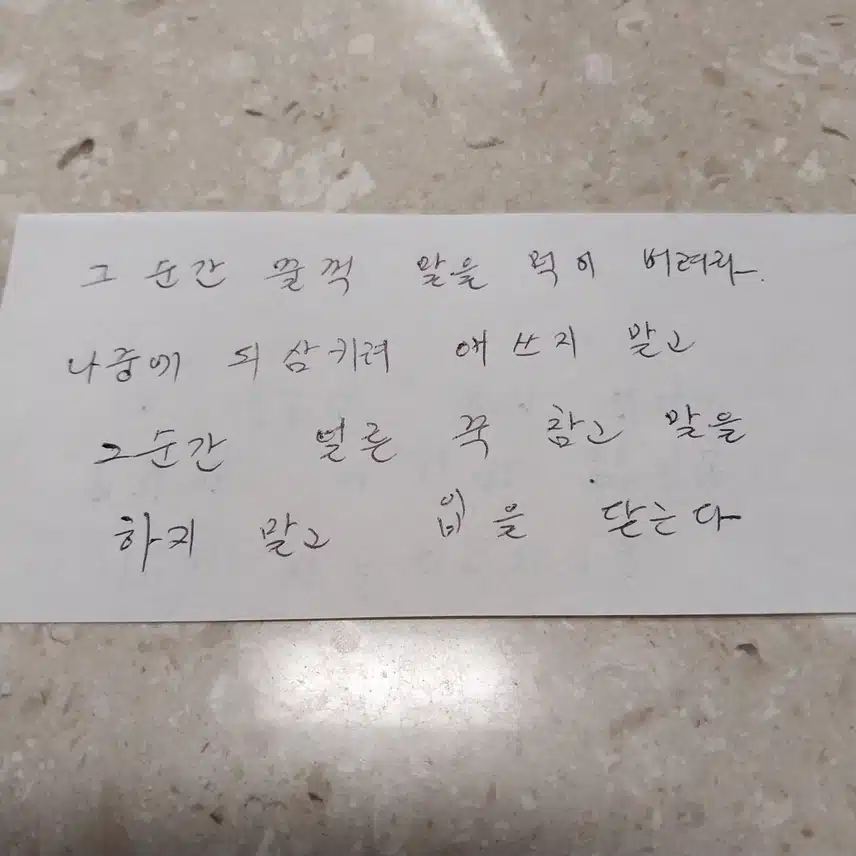 그 순간 꿀꺽 말을 먹어 버려라.
나중에 되삼키려 애쓰지 말고
그 순간 얼른 꾹 참고 말을
하지 말고 입을 닫는다